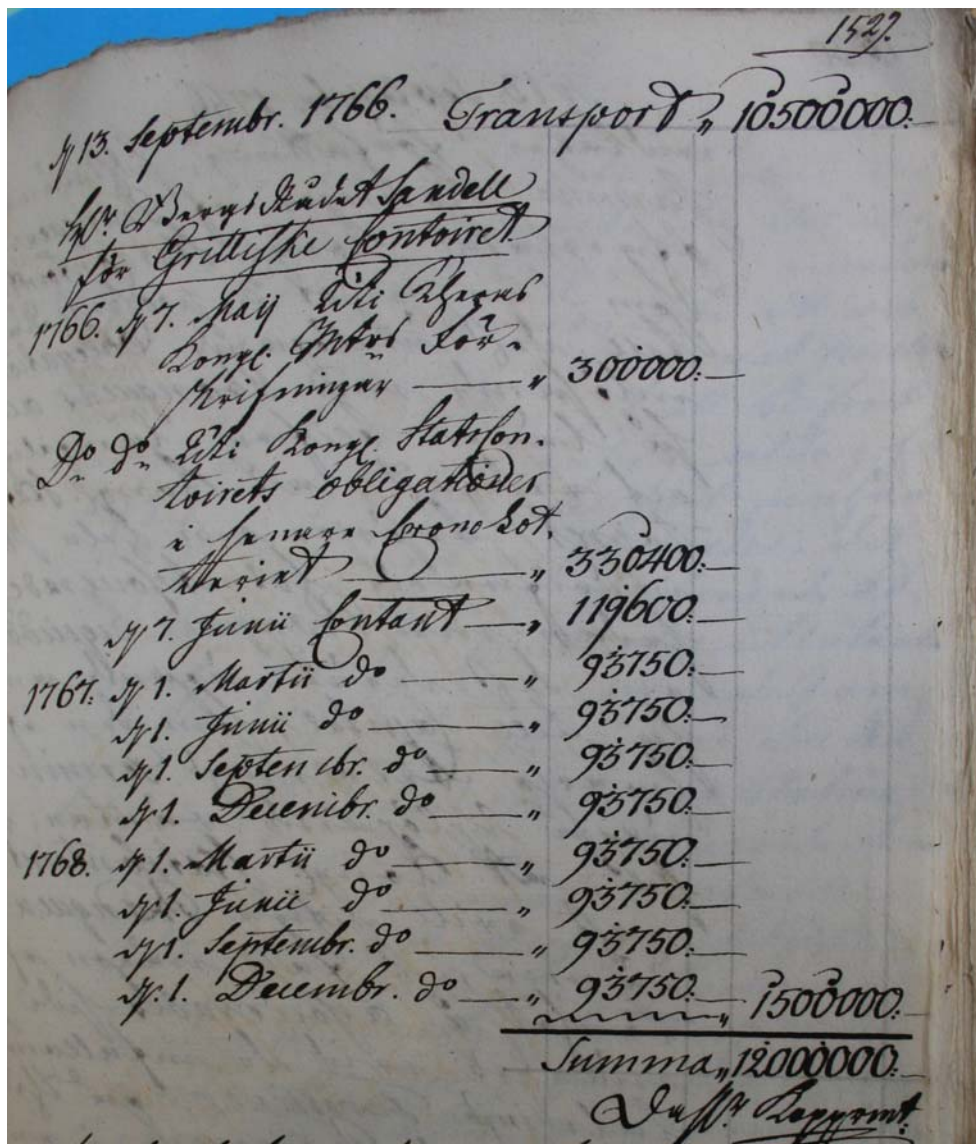 1527.
d 13. Septembr. 1766. Transport „ 10500000:
Hr. Bergs Rådet Sandell
för Grilliske Contoiret
1766. d 7. Maij Uti
Kongl. Maijts För-
skrifningar — „ 300000:—
Do do Uti Kongl. Stats Con-
toirets obligationer
i senare Crono Lot-
teriet — „ 330400:—
d 7. Junii Contant — „ 119600:—
1767. d 1. Martii do — „ 93750:—
d 1. Junii do — „ 93750:—
d 1. Septembr. do — „ 93750:—
d 1. Decembr. do — „ 93750:—
1768. d 1. Martii do — „ 93750:—
d 1. Junii do — „ 93750:—
d 1. Septembr. do — „ 93750:—
d. 1. Decembr. do — „ 93750:— „ 1500000:
Summa „ 12000000:—